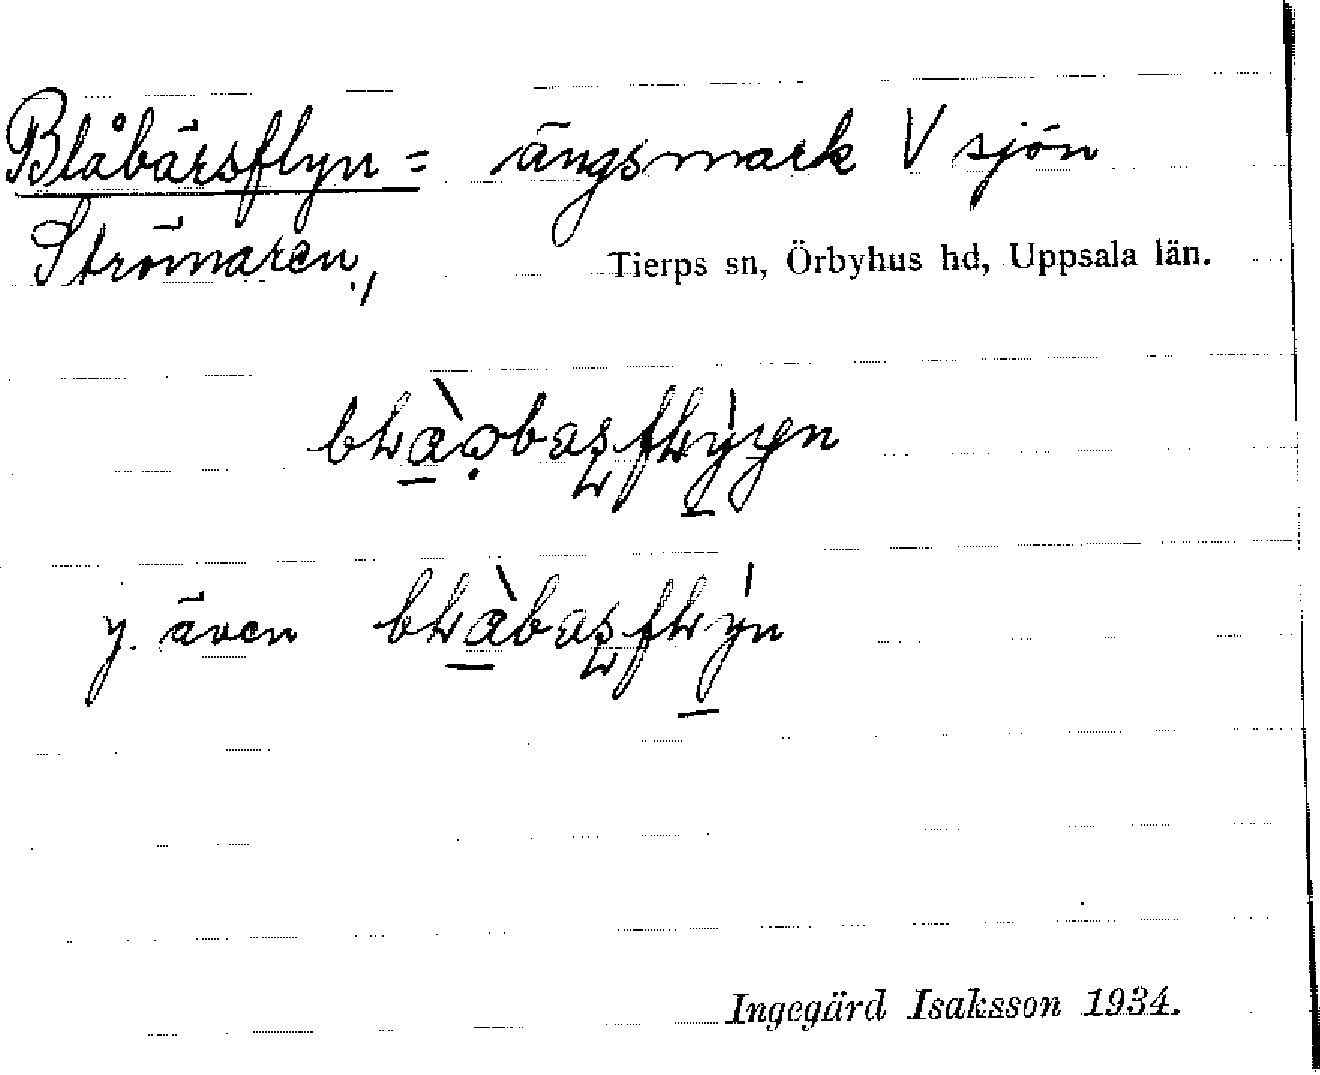 Blåbärsflyn = ängsmark V sjön
Strömaren,
Tierps sn, Örbyhus hd, Uppsala län.
y. även
Ingegärd Isaksson 1934.